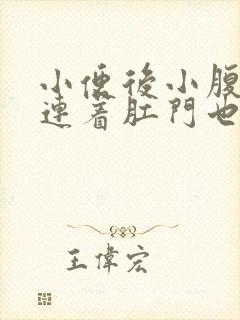 小便後小腹
連着肛門也
王偉宏